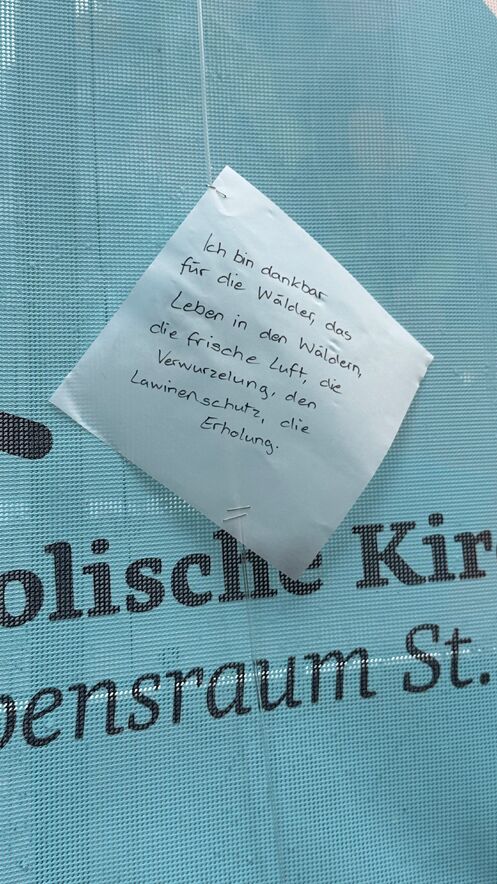 Ich bin dankbar
für die Wälder, das
Leben in den Wäldern,
die frische Luft, die
Verwurzelung, den
Lawinenschutz, die
Erholung.
olische Kir
bensraum St.